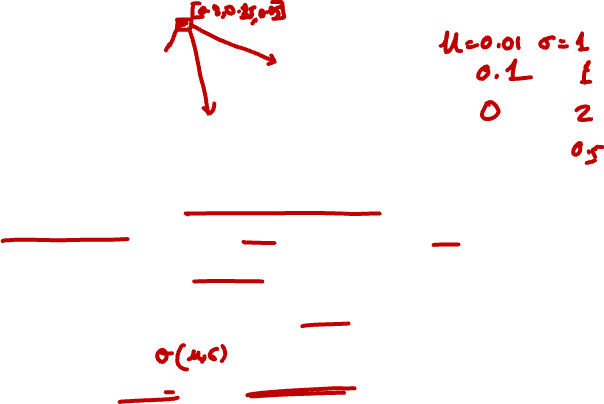 [0.8,0.15,0.05]
μ=0.01 σ=1
0.1 1
0 2
0.5
σ(μ,σ)